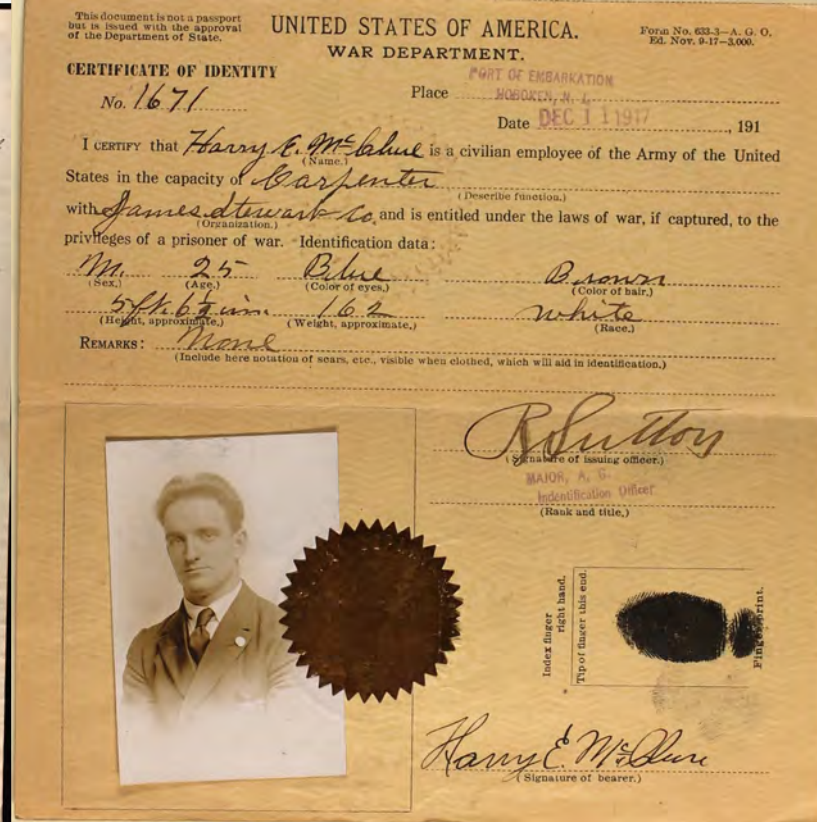 This document is not a passport
but is issued with the approval
of the Department of State.
UNITED STATES OF AMERICA.
WAR DEPARTMENT.
Form No. 633-3—A. G. O.
Ed. Nov. 9-17—3,000.
CERTIFICATE OF IDENTITY
No. 1671
Place PORT OF EMBARKATION
HOBOKEN, N. J.
Date DEC 11 1917, 191
I CERTIFY that Harry E. McClure is a civilian employee of the Army of the United
(Name.)
States in the capacity of Carpenter
(Describe function.)
with James Stewart Co, and is entitled under the laws of war, if captured, to the
(Organization.)
privileges of a prisoner of war. Identification data:
M. 25 Blue Brown
(Sex.) (Age.) (Color of eyes.) (Color of hair.)
5 ft. 6½ in. 162 white
(Height, approximate.) (Weight, approximate.) (Race.)
REMARKS: None
(Include here notation of scars, etc., visible when clothed, which will aid in identification.)
R Sutton
(Signature of issuing officer.)
MAJOR, A. G.
Indentification Officer
(Rank and title.)
Index finger
right hand.
Tip of finger this end.
Fingerprint.
Harry E. McClure
(Signature of bearer.)